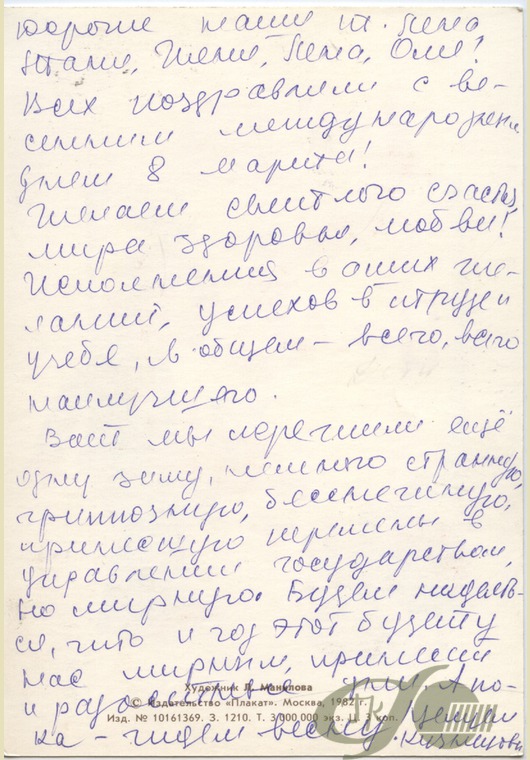 Дорогие наши т. Лена
Таня, Женя, Лена, Оля!
Всех поздравляем с ве-
сенним международным
днем 8 марта!
Желаем светлого счастья,
мира здоровья, любви!
Исполнения ваших же-
ланий, успехов в труде и
учебе, в общем - всего, всего
наилучшего.
Вот мы пережили ещё
одну зиму, немного странную,
гриппозную, бесснежную,
принесшую перемены в
управлении государством,
но мирную. Будем надеять-
ся, что и год этот будет у
нас мирным, принесёт
и радость. А по-
ка - ждем весну. Целуем
Кузнецовы
Художник Л. Манилова
© Издательство «Плакат». Москва, 1982 г.
Изд. № 10161369. З. 1210. Т. 3 000 000 экз. Ц. 3 коп.